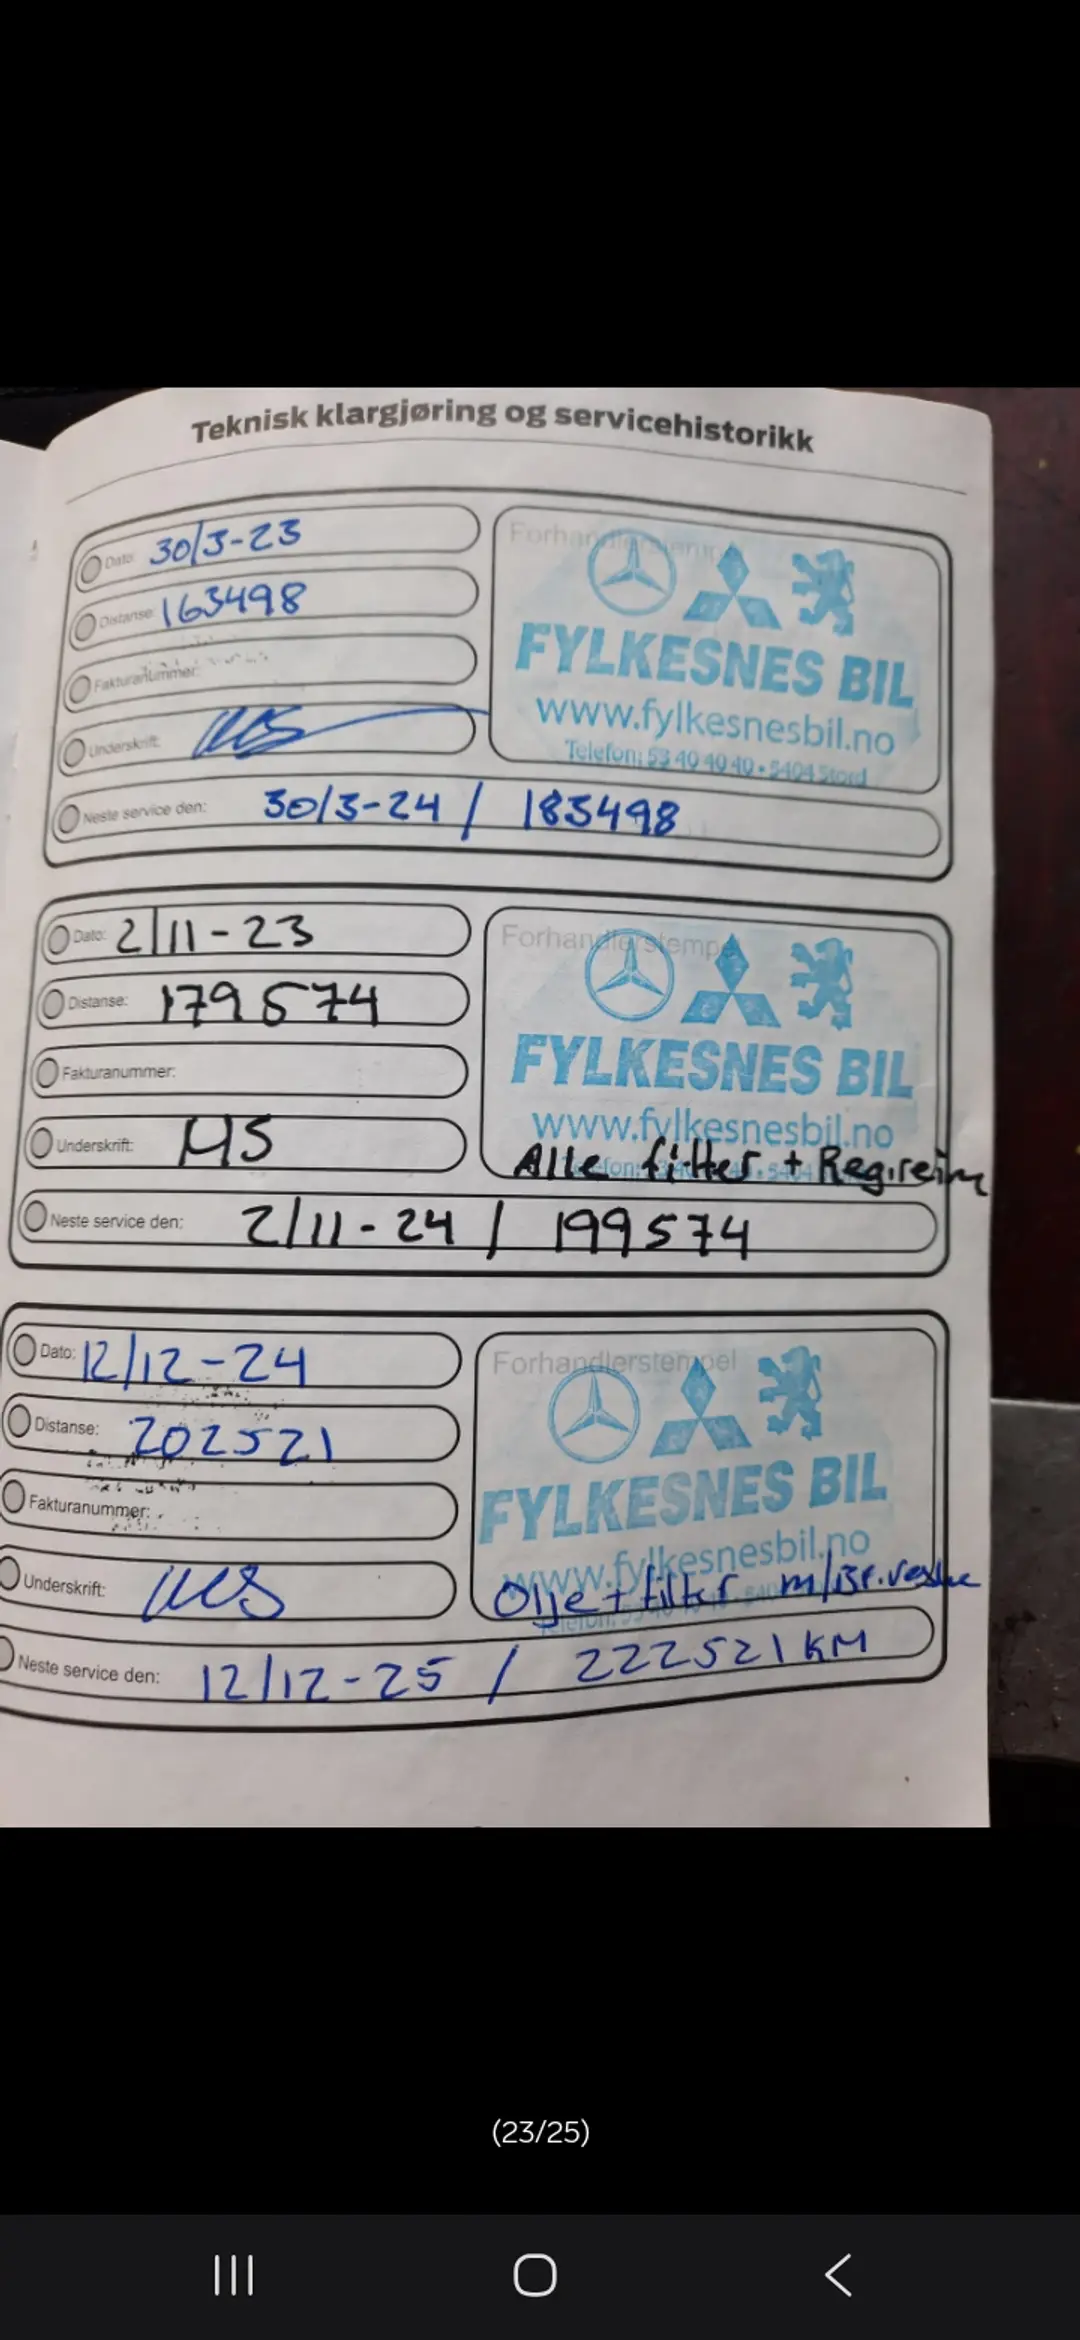 Teknisk klargjøring og servicehistorikk
Dato: 30/3-23
Distanse: 163498
Fakturanummer:
Underskrift: MS
Forhandlerstempel
FYLKESNES BIL
www.fylkesnesbil.no
Telefon: 53 40 40 40 • 5404 Stord
Neste service den: 30/3-24 / 183498
Dato: 2/11-23
Distanse: 179574
Fakturanummer:
Underskrift: MS
Forhandlerstempel
FYLKESNES BIL
www.fylkesnesbil.no
Alle filter + Reg.reim
Neste service den: 2/11-24 / 199574
Dato: 12/12-24
Distanse: 202521
Fakturanummer:
Underskrift: MS
Forhandlerstempel
FYLKESNES BIL
www.fylkesnesbil.no
Olje + filter m/Br.veske
Neste service den: 12/12-25 / 222521 KM
(23/25)